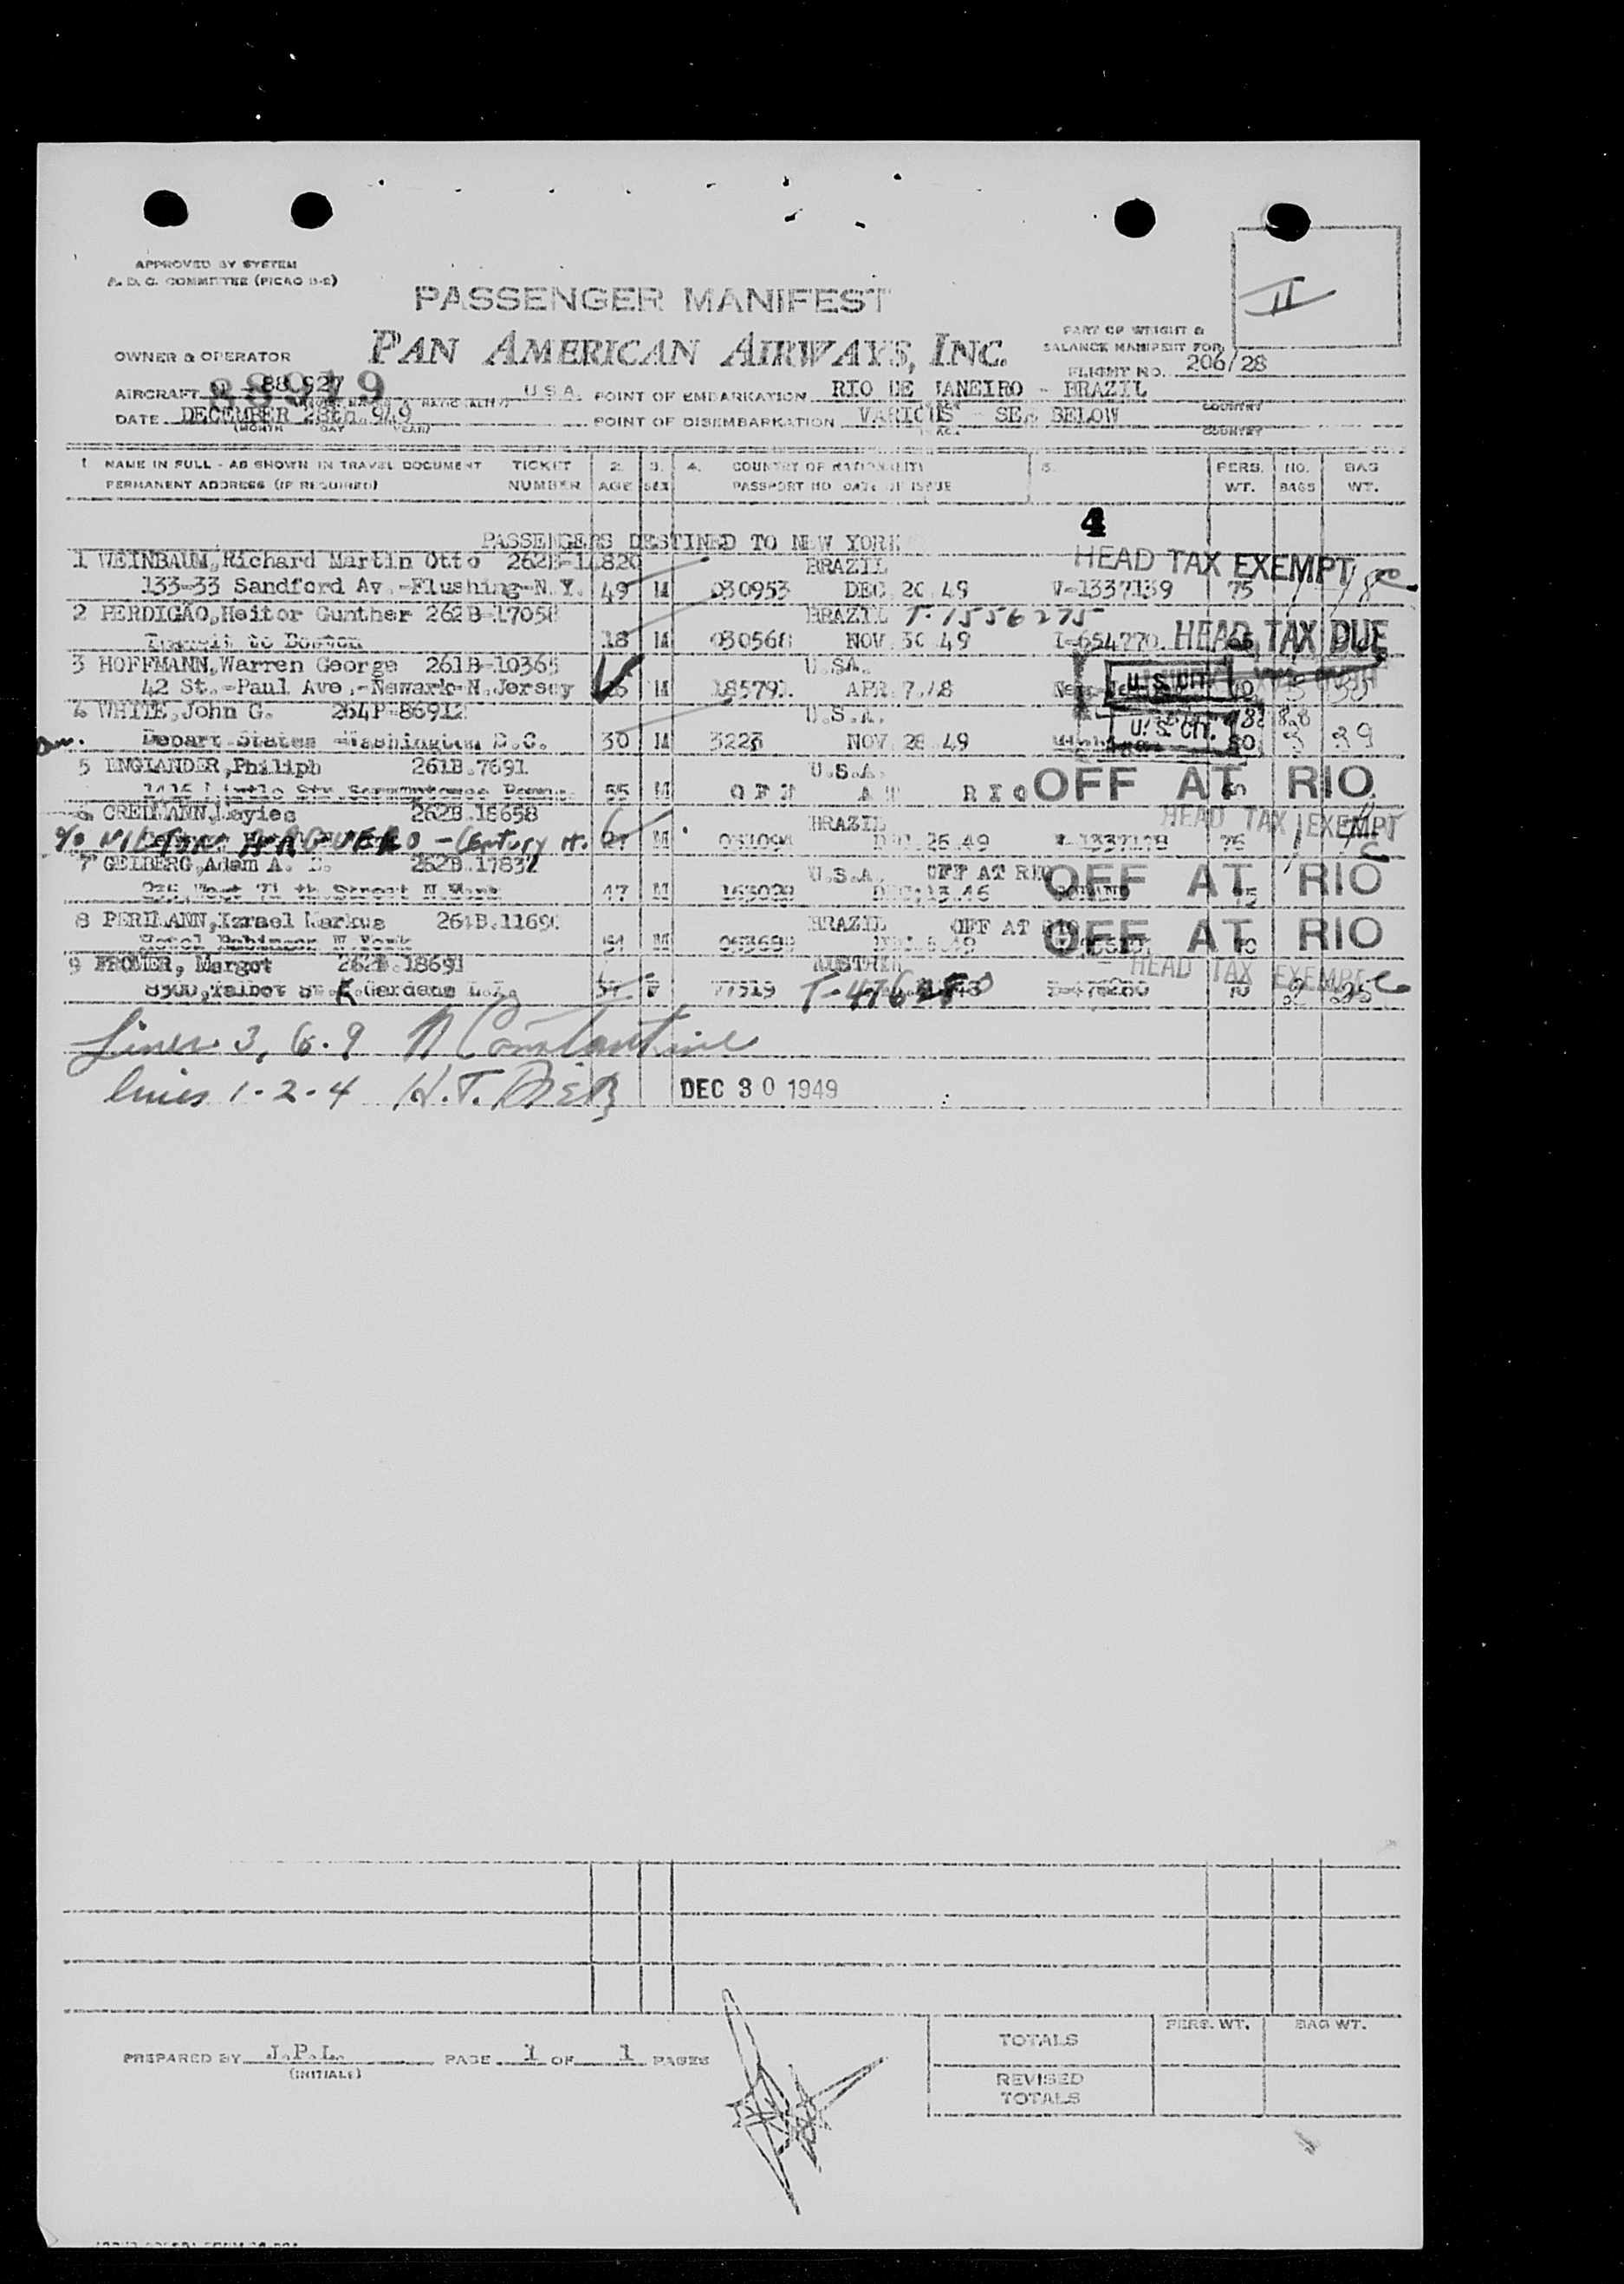 APPROVED BY SYSTEM
A. D. C. COMMITTEE (PICAO D-2)
II
PASSENGER MANIFEST
PAN AMERICAN AIRWAYS, INC.
PART OF WEIGHT &
BALANCE MANIFEST FOR
OWNER & OPERATOR
FLIGHT NO. 206/28
AIRCRAFT 88919 U.S.A. POINT OF EMBARKATION RIO DE JANEIRO - BRAZIL
COUNTRY
DATE DECEMBER 28th. 949 POINT OF DISEMBARKATION VARIOUS - SEE BELOW
(MONTH DAY YEAR) COUNTRY
1. NAME IN FULL - AS SHOWN IN TRAVEL DOCUMENT TICKET 2. 3. 4. COUNTRY OF NATIONALITY 5. PERS. NO. BAG
PERMANENT ADDRESS (IF REQUIRED) NUMBER AGE SEX PASSPORT NO DATE OF ISSUE WT. BAGS WT.
4
PASSENGERS DESTINED TO NEW YORK
1 WEINBAUM, Richard Martin Otto BRAZIL HEAD TAX EXEMPT
133-33 Sandford Av.-Flushing-N.Y. 49 M 030953 DEC. 20.49 V-1337139 75 1 18
2 PERDIGÃO, Heitor Gunther 262B-17058 BRAZIL T-1556275
Transit to Boston 18 M 030568 NOV. 30.49 I-654770. HEAD TAX DUE
3 HOFFMANN, Warren George 261B-10365 U.SA.
42 St.-Paul Ave.-Newark-N.Jersey M 185791 APR. 7.48 U.S. CIT.
4 WHITE, John G. 264P-86912 U.S.A.
Depart. States -Washington D.C. 30 M 3223 NOV. 28.49 U.S. CIT. 3 39
5 ENGLANDER, Philiph 261B.7691 U.S.A.
55 M OFF AT RIO OFF AT RIO
6 262B.18658 BRAZIL HEAD TAX EXEMPT
c/o - Century H. M 26.49 76 1
7 GELBERG, Adam A. 262B.17832 U.S.A. OFF AT RIO OFF AT RIO
235, West 71 th. Street N.York 47 M 163022 DEC; 13.46
8 PERLMANN, Izrael Markus 264B.11690 BRAZIL OFF AT RIO OFF AT RIO
Hotel Robinson N York 51 M 70
9 FROMER, Margot 262B.18691 AUSTRIA HEAD TAX EXEMPT
8300, Talbot St. K. Gardens L.I. F 77519 70 2 25
Lines 3, 6. 9 N Constantine
lines 1-2-4 H.T.
DEC 30 1949
PREPARED BY J.P.L. PAGE 1 OF 1 PAGES
(INITIALS)
PERS. WT. BAG WT.
TOTALS
REVISED
TOTALS